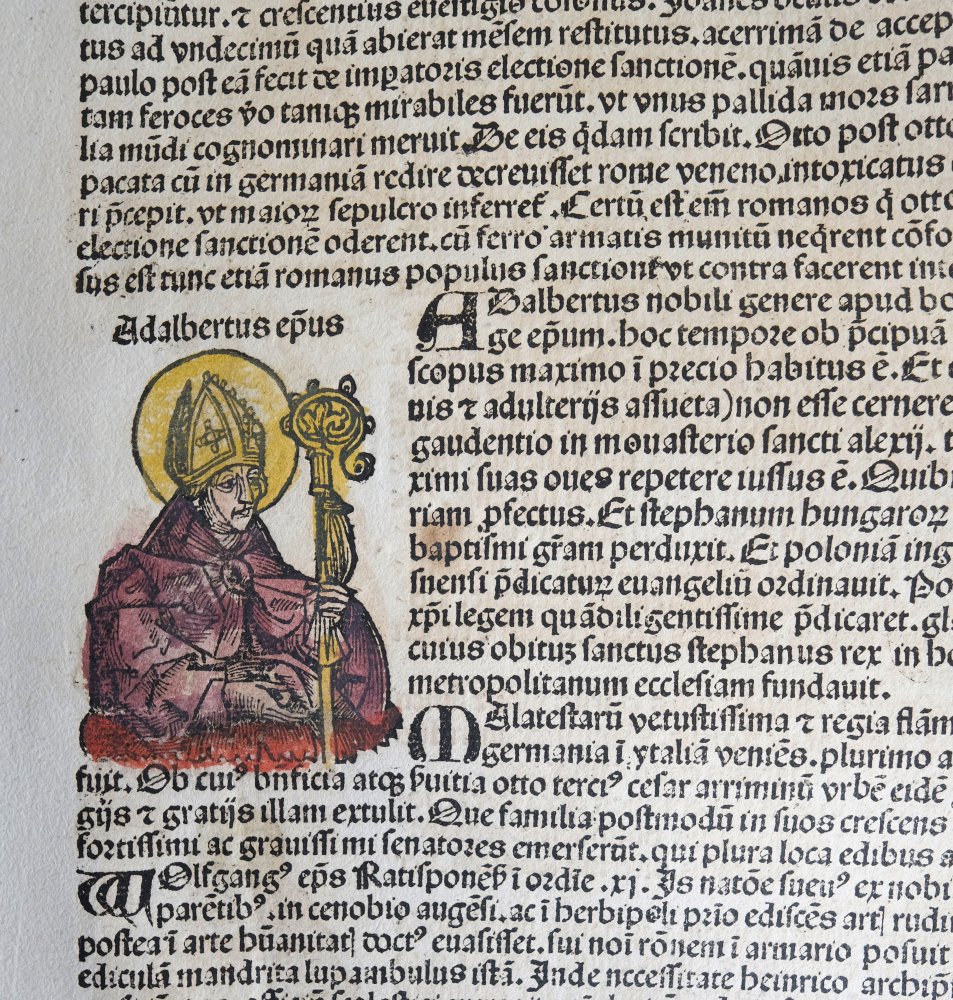 tercipiūtur. ⁊ crescentius
tus ad vndecimū quā abierat mēsem restitutus. acerrimā de accep
paulo post eā fecit de imꝑatoris electione sanctionē. quāuis etiā pa
tam feroces v̄o tamqꝫ mirabiles fuerūt. vt vnus pallida mors
lia mūdi cognominari meruit. De eis q̄dam scribit. Otto post otto
pacata cū in germaniā redire decreuisset rome veneno intoxicatus
ri p̄cepit. vt maioꝝ sepulcro inferret᷑. Certū est em̄ romanos q̄ otto
electione sanctionē oderent. cū ferro armatis munitū neq̄rent cōfo
sus est tunc etiā romanus populus sanctionē vt contra facerent
Adalbertus ep̄us
ADalbertus nobili genere apud bo
ge ep̄um. hoc tempore ob p̄cipuā
scopus maximo ī precio habitus ē. Et
nis ⁊ adulterijs assueta) non esse cernere
gaudentio in monasterio sancti alexij. t
ximi suas oues repetere iussus ē. Quib
riam ꝓfectus. Et stephanum hungaroꝝ
baptismi gr̄am perduxit. Et poloniā ing
snensi p̄dicatuꝝ euangeliū ordinauit. Po
xp̄i legem quādiligentissime p̄dicaret. gl
cuius obituꝫ sanctus stephanus rex in ho
metropolitanum ecclesiam fundauit.
MAlatestarū vetustissima ⁊ regia flām
germania ī ytaliā veniēs. plurimo a
fuit. Ob cuiꝰ bn̄ficia atqꝫ s̄uitia otto terciꝰ cesar arriminū vrbē eidē
gijs ⁊ gratijs illam extulit. Que familia postmodū in suos crescens
fortissimi ac grauissimi senatores emerserūt. qui plura loca edibus a
WOlfgangꝰ ep̄s Ratisponēs̄ ī ordīe .xj. Is natōe sueuꝰ ex nobi
parētibꝰ. in cenobio augēsi. ac ī herbipoli prīo ediscēs artꝭ rudi
postea ī arte hūanitatꝭ doctꝰ euasisset. sui noī rōnem ī armario posuit
ediculā mandrita lup ambulus istā. Inde necessitate heinrico archip̄